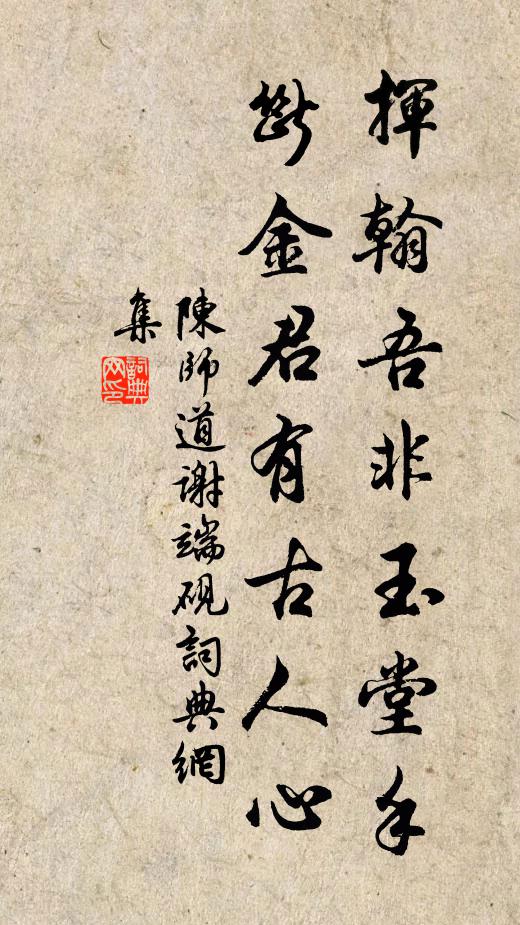 揮翰吾非玉堂手
斷金君有古人心
陳師道謝端硯詞典網
集
詞典
网印